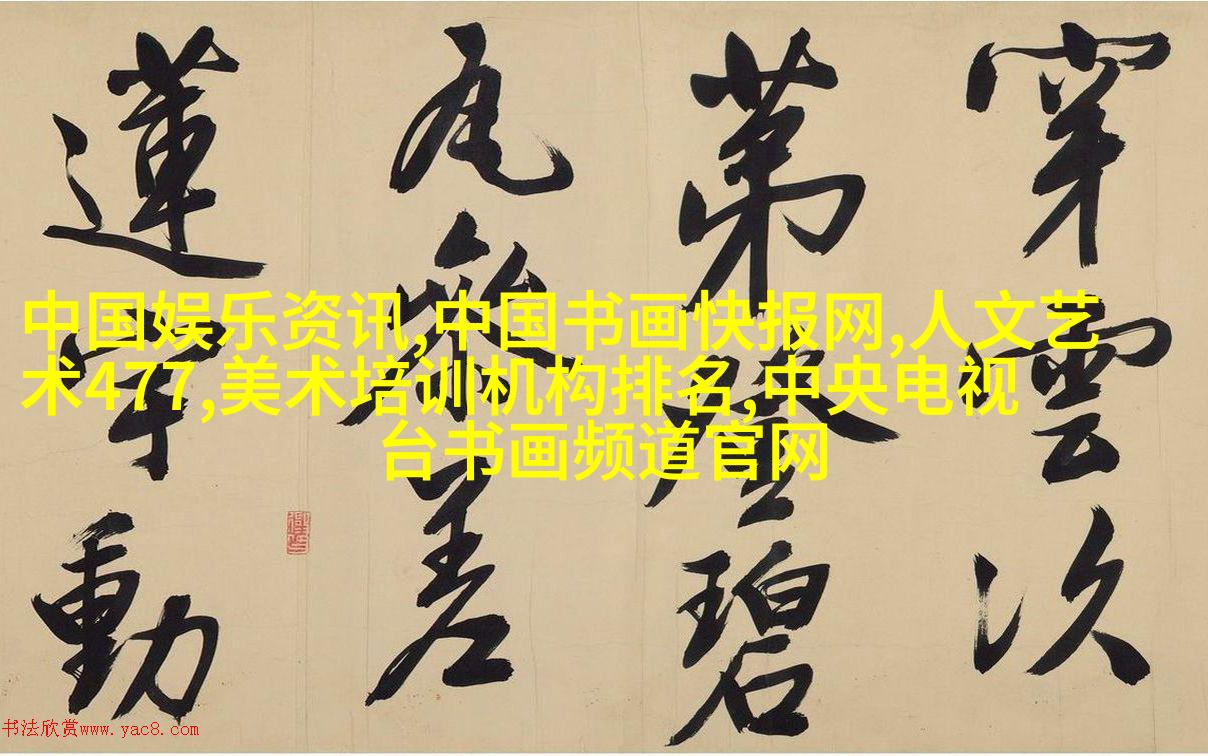 穿雲次
第登碧
瓦參差
蓮宇動
中国娱乐资讯,中国书画快报网,人文艺
术477,美术培训机构排名,中央电视
台书画频道官网
书法欣赏www.yac8.com